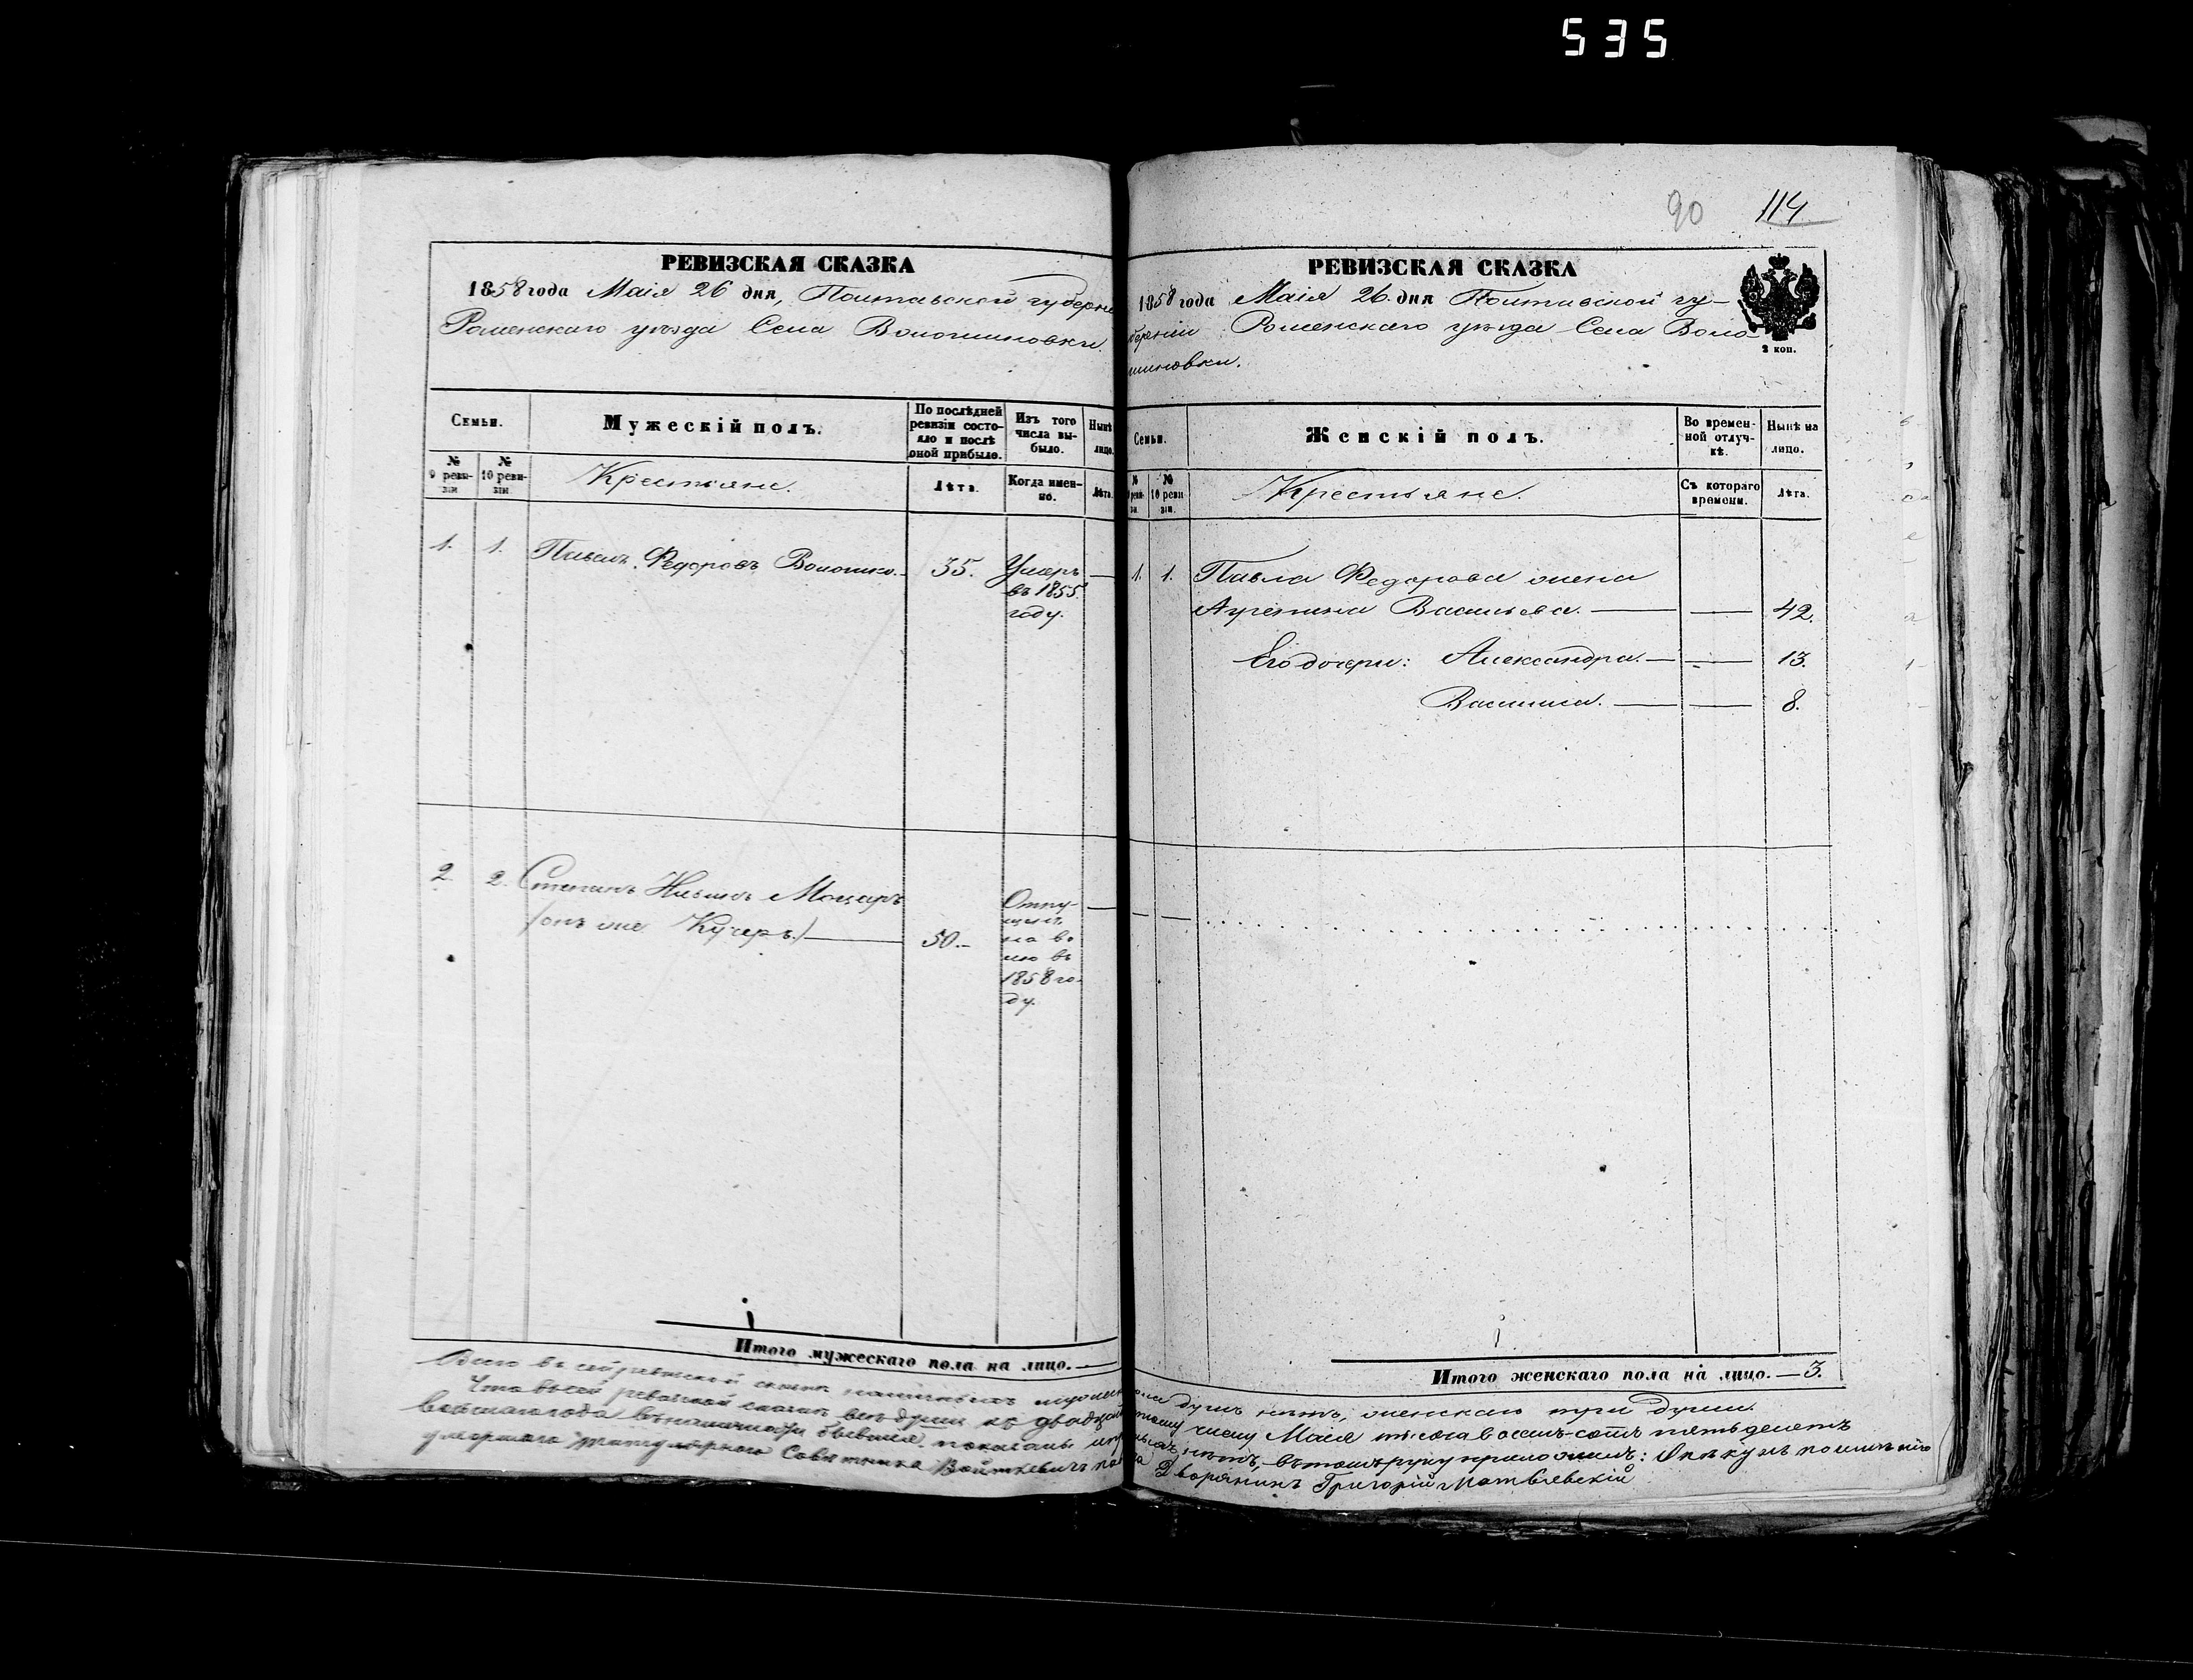 535
90 114
РЕВИЗСКАЯ СКАЗКА
1858 года Маія 26 дня, Полтавской губерні
Роменскаго уѣзда Села Волошиновки.
Семьи.
Мужескій полъ.
По послѣдней ревизіи состояло и послѣ оной прибыло.
Изъ того числа выбыло.
Нынѣ лицо.
№ 9 ревизіи
№ 10 ревизіи.
Крестьяне.
Лѣта.
Когда именно.
Лѣта.
1. 1. Павелъ Федоровъ Волошко. 35. Умеръ
въ 1855
году.
2. 2. Степанъ Ильинъ Моцаръ
(онъ же Кучеръ.) 50.
Отпу-
щенъ
на во
лю въ
1858 го-
ду.
Итого мужескаго пола на лицо.
РЕВИЗСКАЯ СКАЗКА
1858 года Маія 26 дня Полтавской гу-
берніи Роменскаго уѣзда Села Воло-
шиновки.
2 коп.
Семьи.
Женскій полъ.
Во временной отлучкѣ.
Нынѣ на лицо.
№ 10 ревизіи.
Крестьяне.
Съ котораго времени.
Лѣта.
1. 1. Павла Федорова жена
Агрепина Васильева. 42.
Его дочери: Александра. 13.
Василиса. 8.
Итого женскаго пола на лицо. 3.
Всего въ сей ревизской сказкѣ наличныхъ мужеска пола душъ нѣтъ, женскаго три души.
Что въ сей ревизской сказкѣ всѣ души къ двадцать числу Маія тысяча восемь-сотъ пятьдесятъ
восьмаго года въ наличности бывшія показаны нѣтъ, въ томъ руку приложилъ: Опѣкунъ помѣстій
умершаго титулярнаго Совѣтника Войткевича Дворянинъ Григорій Матвѣевскій